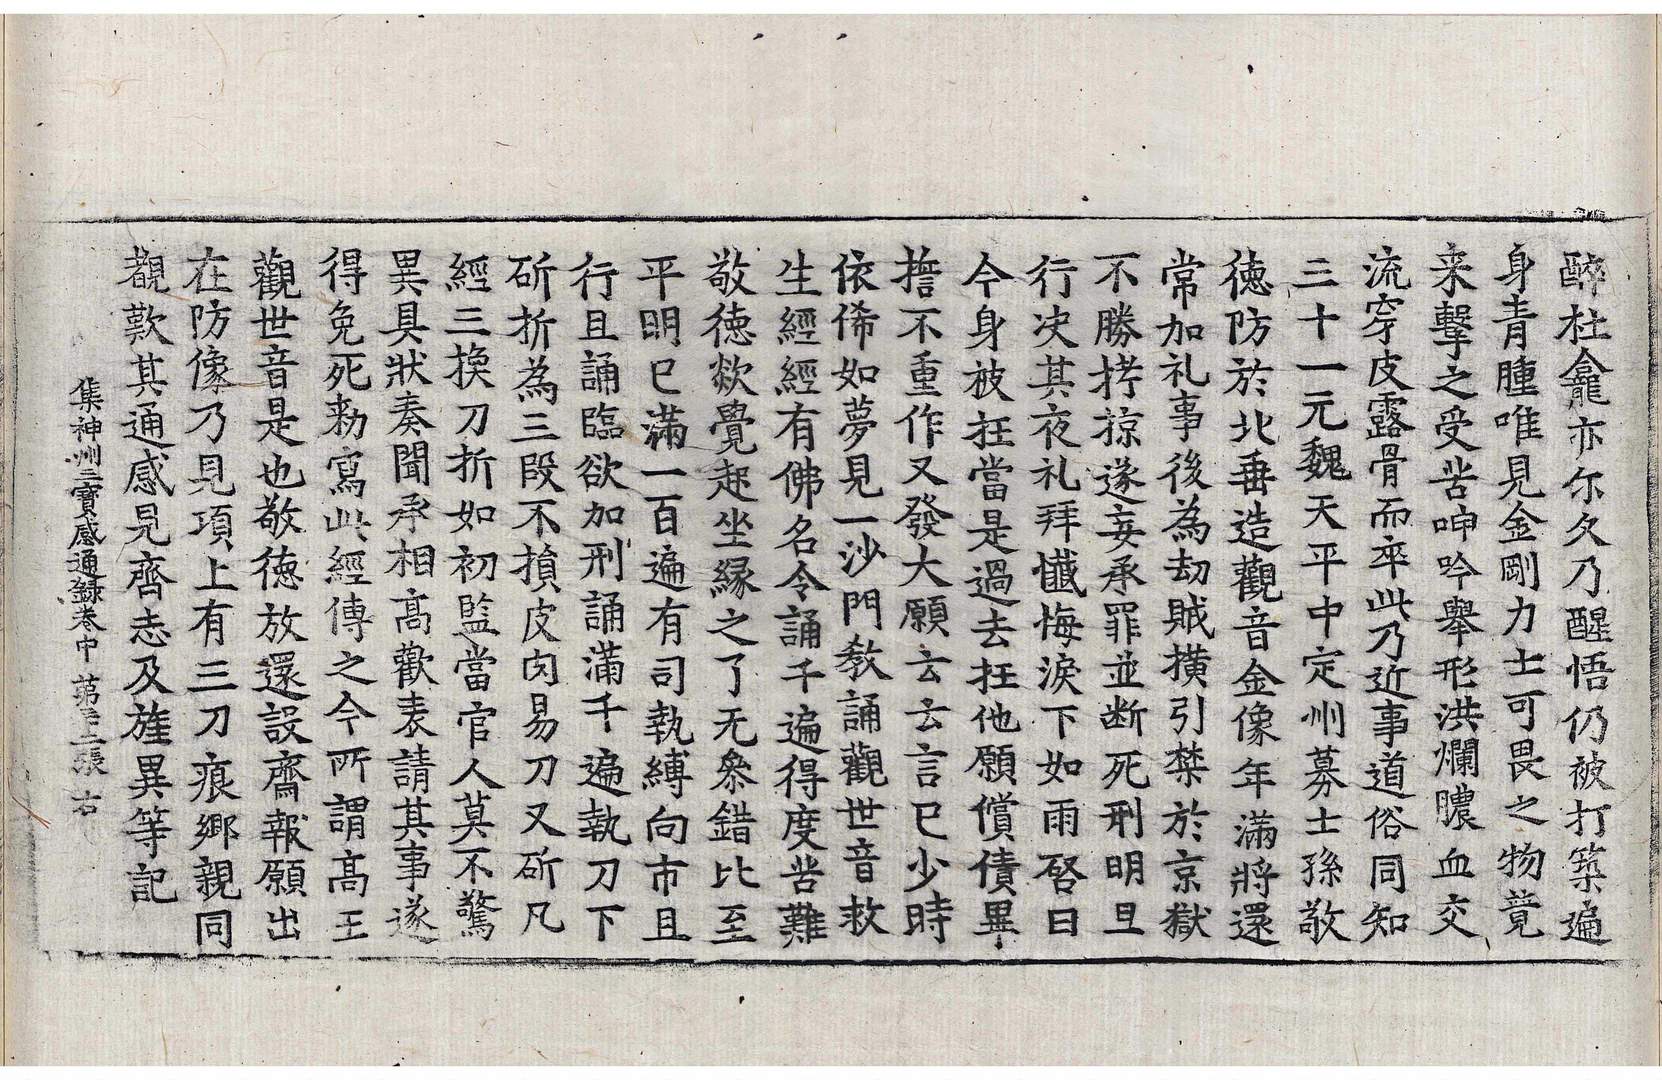 醉杜龕亦尔久乃醒悟仍被打築遍
身青腫唯見金剛力士可畏之物競
来擊之受苦呻吟舉形洪爛膿血交
流穿皮露骨而卒此乃近事道俗同知
三十一元魏天平中定州募士孫敬
徳防於北垂造觀音金像年滿將還
常加礼事後為劫賊撗引禁於京獄
不勝拷掠遂妄承罪並断死刑明旦
行决其夜礼拜懺悔淚下如雨啓曰
今身被抂當是過去抂他願償債畢
擔不重作又發大願云云言已少時
依俙如夢見一沙門教誦觀世音救
生經經有佛名令誦千遍得度苦難
敬徳欻覺起坐緣之了无叅錯比至
平明已滿一百遍有司執縛向市且
行且誦臨欲加刑誦滿千遍執刀下
斫折為三段不損皮肉易刀又斫凡
經三換刀折如初監當官人莫不驚
異具狀奏聞承相高歡表請其事遂
得免死勑寫此經傳之今所謂高王
觀世音是也敬徳放還設齋報願出
在防像乃見項上有三刀痕鄉親同
覩歎其通感見齊志及旌異等記
集神州三寶感通録卷中 第三二張 右